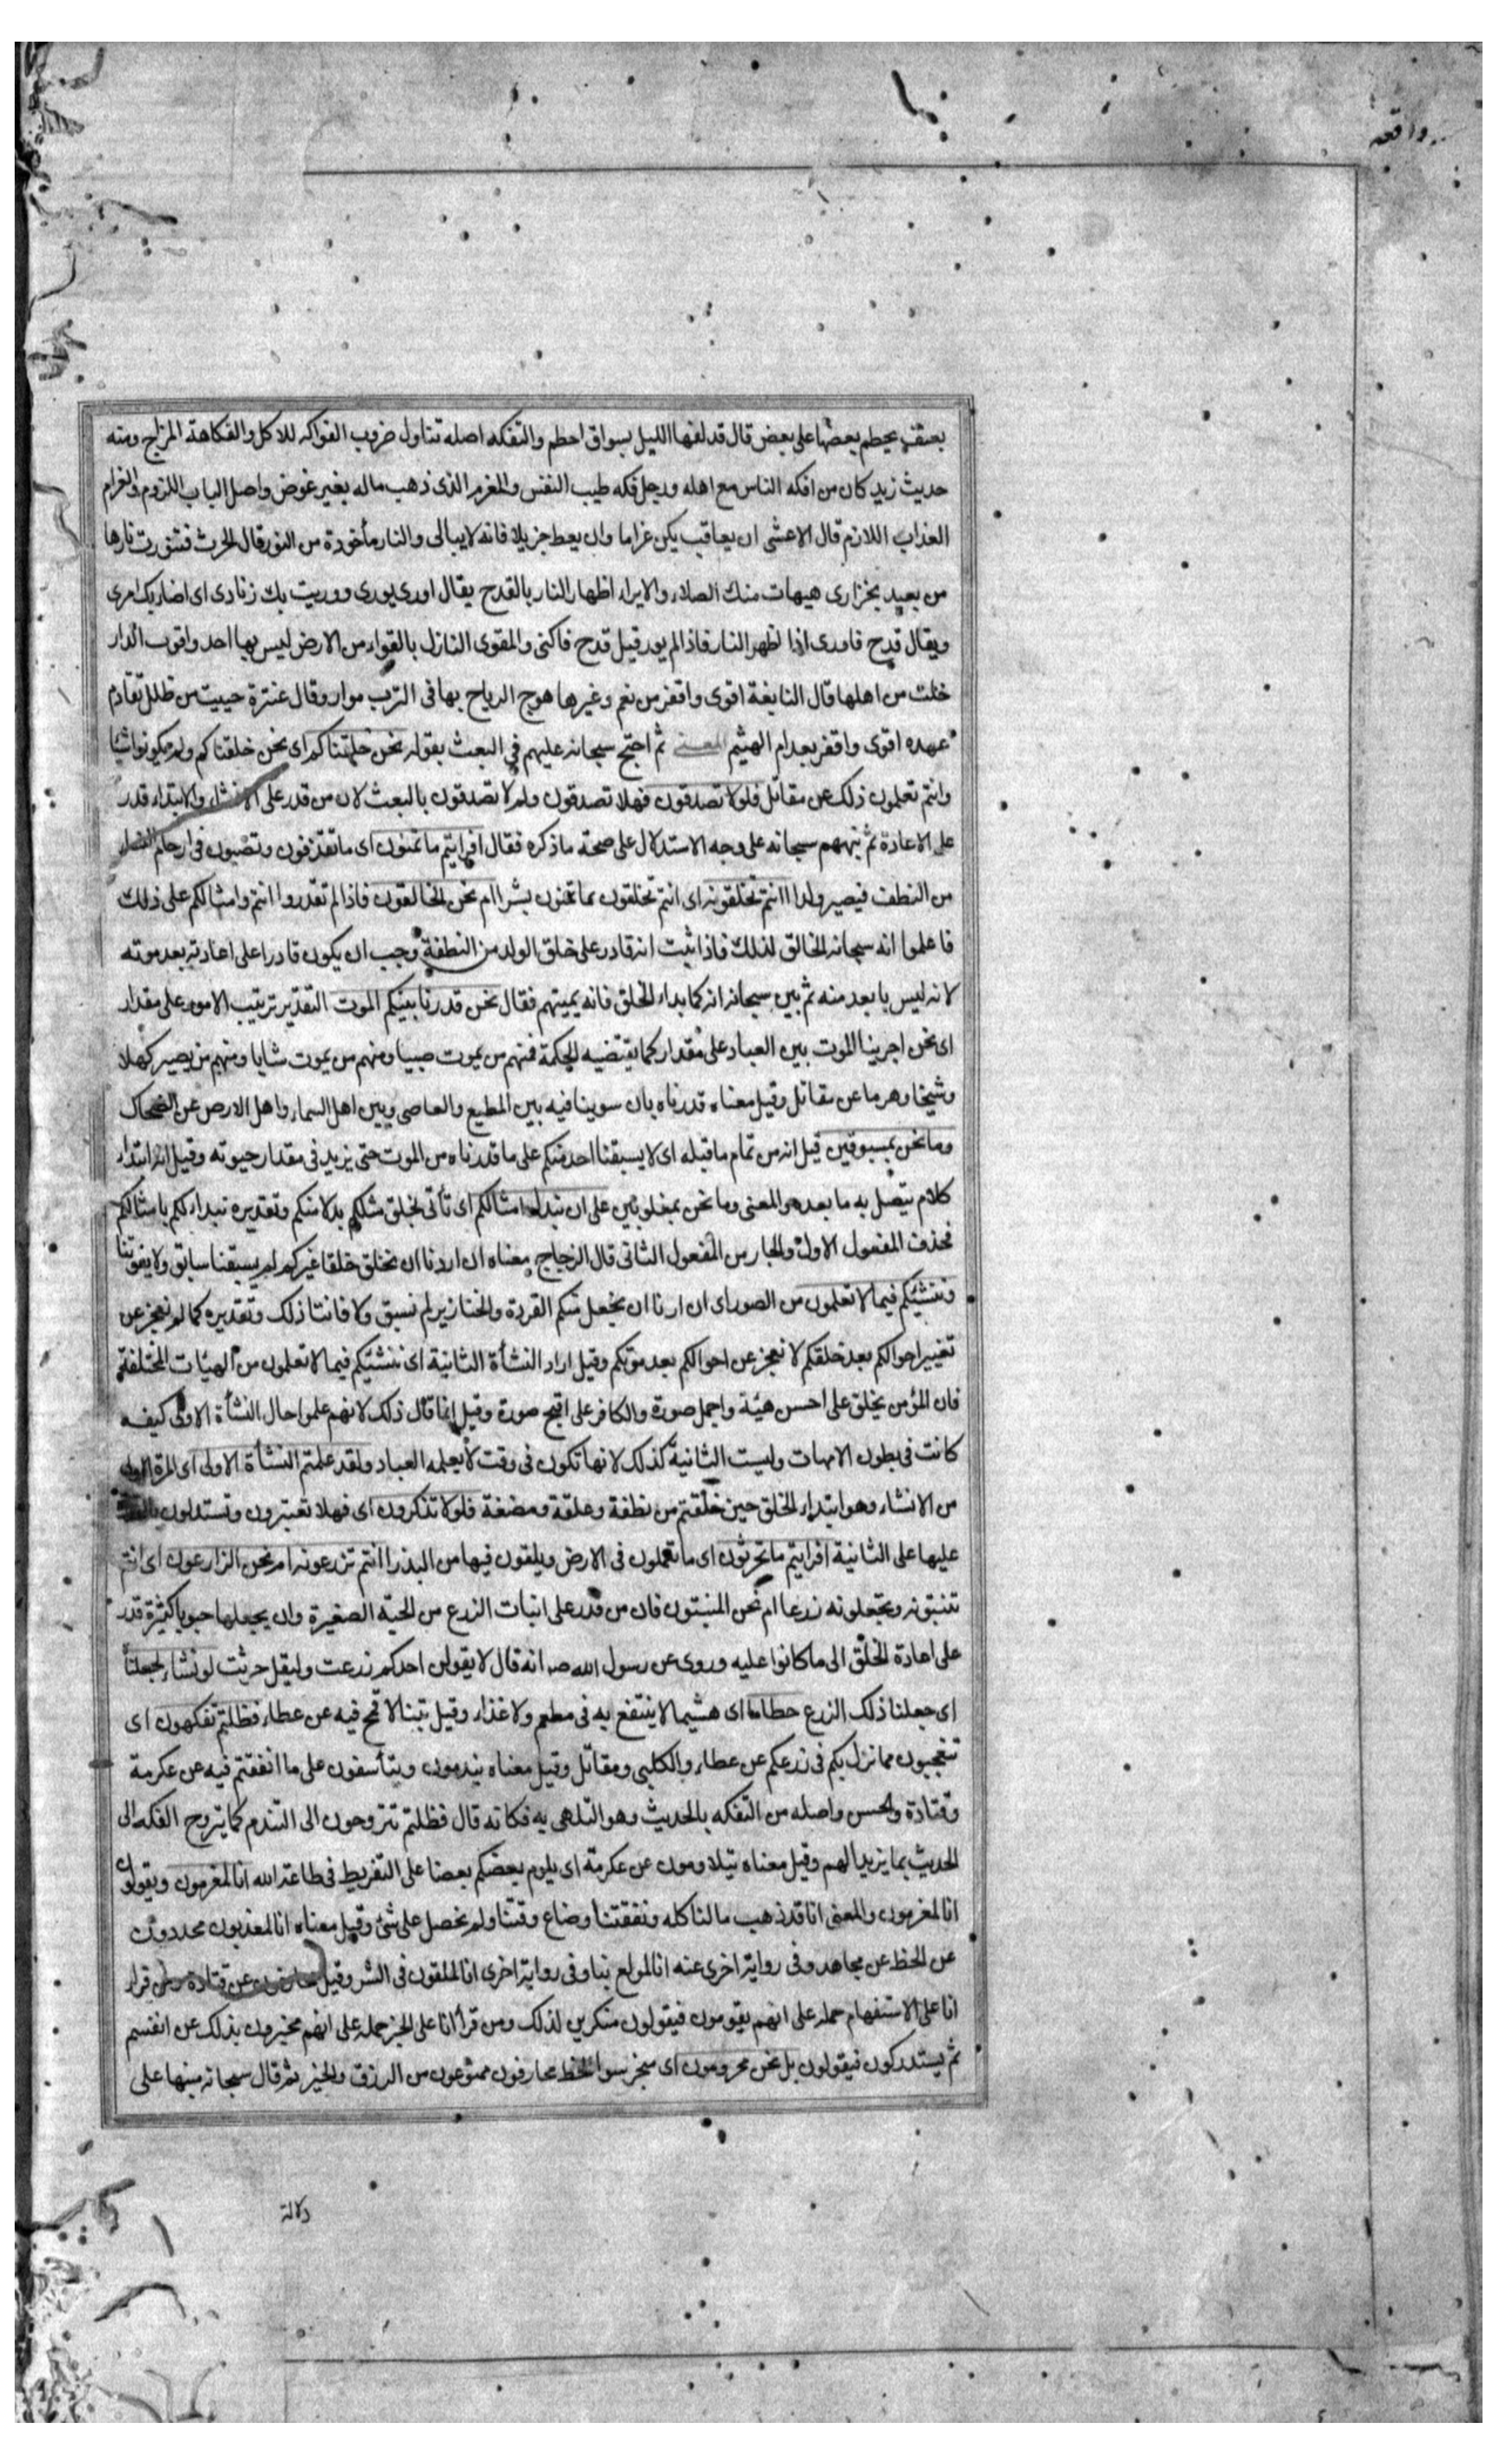 واقعه
بعنف يحطم بعضها على بعض قال قد لفها الليل بسواق احطم والتفكه اصله تناول ضروب الفواكه للاكل والفكاهة المزاح ومنه
حديث زيد كان من افكه الناس مع اهله ورجل فكه طيب النفس والمغرم الذى ذهب ماله بغير عوض واصل الباب اللزوم والغرام
العذاب اللازم قال الاعشى ان يعاقب يكن غراما وان يعط جزيلا فانه لا يبالى والنار مأخوذة من النور قال الحرث فتنورت نارها
من بعيد بخزازى هيهات منك الصلاء والايراء اظهار النار بالقدح يقال اورى يورى ووريت بك زنادى اى اضاء بك امرى
ويقال قدح فاورى اذا ظهر النار فاذا لم يور قيل قدح فاكبى والمقوى النازل بالقواء من الارض ليس بها احد واقوت الدار
خلت من اهلها قال النابغة اقوى واقفر من نعم وغيرها هوج الرياح بها فى الترب موار وقال عنترة حييت من طلل تقادم
عهده اقوى واقفر بعد ام الهيثم المعنى ثم احتج سبحانه عليهم فى البعث بقوله نحن خلقناكم اى نحن خلقناكم ولم يكونوا شيئا
وانتم تعلمون ذلك عن مقاتل فلولا تصدقون فهلا تصدقون ولم لا تصدقون بالبعث لان من قدر على الانشاء والابتداء قدر
على الاعادة ثم نبههم سبحانه على وجه الاستدلال على صحة ما ذكره فقال افرايتم ما تمنون اى ما تقذفون وتصبون فى ارحام النساء
من النطف فيصير ولدا ءانتم تخلقونه اى انتم تخلقون بما تمنون بشرا ام نحن الخالقون فاذا لم تقدروا انتم وامثالكم على ذلك
فاعلموا انه سبحانه الخالق لذلك فاذا ثبت انه قادر على خلق الولد من النطفة وجب ان يكون قادرا على اعادته بعد موته
لانه ليس بابعد منه ثم بين سبحانه انه كما بداء الخلق فانه يميتهم فقال نحن قدرنا بينكم الموت التقدير ترتيب الامور على مقدار
اى نحن اجرينا الموت بين العباد على مقدار كما يقتضيه الحكمة فمنهم من يموت صبيا ومنهم من يموت شابا ومنهم من يصير كهلا
وشيخا وهرما عن مقاتل وقيل معناه قدرناه بان سوينا فيه بين المطيع والعاصى وبين اهل السماء واهل الارض عن الضحاك
وما نحن بمسبوقين قيل انه من تمام ما قبله اى لا يسبقنا احد منكم على ما قدرناه من الموت حتى يزيد فى مقدار حيوته وقيل انه ابتداء
كلام يتصل به ما بعده والمعنى وما نحن بمغلوبين على ان نبدل امثالكم اى تأتى بخلق مثلكم بدلا منكم وتقديره نبدلكم بامثالكم
فحذف المفعول الاول والجار من المفعول الثانى قال الزجاج معناه ان اردنا ان نخلق خلقا غيركم لم يسبقنا سابق ولا يفوتنا
وننشئكم فيما لا تعلمون من الصور اى ان اردنا ان نجعل منكم القردة والخنازير لم نسبق ولا فاتنا ذلك وتقديره كما لم نعجز عن
تغيير احوالكم بعد خلقكم لا نعجز عن احوالكم بعد موتكم وقيل اراد النشأة الثانية اى ننشئكم فيما لا تعلمون من الهيئات المختلفة
فان المؤمن يخلق على احسن هيئة واجمل صورة والكافر على اقبح صورة وقيل انما قال ذلك لانهم علموا حال النشأة الاولى كيف
كانت فى بطون الامهات وليست الثانية كذلك لانها تكون فى وقت لا يعلمه العباد ولقد علمتم النشأة الاولى اى المرة الاولى
من الانشاء وهو ابتداء الخلق حين خلقتم من نطفة وعلقة ومضغة فلولا تذكرون اى فهلا تعتبرون وتستدلون بالقدرة
عليها على الثانية افرايتم ما تحرثون اى ما تعملون فى الارض ويلقون فيها من البذر ءانتم تزرعونه ام نحن الزارعون اى انتم
تنبتونه وتجعلونه زرعا ام نحن المنبتون فان من قدر على انبات الزرع من الحبة الصغيرة وان يجعلها حبوبا كثيرة قدر
على اعادة الخلق الى ما كانوا عليه وروى عن رسول الله صـ انه قال لا يقولن احدكم زرعت وليقل حرثت لو نشاء لجعلناه
اى جعلنا ذلك الزرع حطاما اى هشيما لا ينتفع به فى مطعم ولا غذاء وقيل تبنا لا قمح فيه عن عطاء فظلتم تفكهون اى
تتعجبون مما نزل بكم فى زرعكم عن عطاء والكلبى ومقاتل وقيل معناه يندمون ويتأسفون على ما انفقتم فيه عن عكرمة
وقتادة والحسن واصله من التفكه بالحديث وهو التلهى به فكانه قال فظلتم تتروحون الى التندم كما يتروح الفكه الى
الحديث بما يزيل الهم وقيل معناه يتلاومون عن عكرمة اى يلوم بعضكم بعضا على التفريط فى طاعة الله انا لمغرمون ويقولون
انا لمغرمون والمعنى انا قد ذهب مالنا كله ونفقتنا وضاع وقتنا ولم نحصل على شئ وقيل معناه انا لمعذبون محدودون
عن الحظ عن مجاهد وفى رواية اخرى عنه انا لمولع بنا وفى رواية اخرى انا لملقون فى الشر وقيل محارفون عن قتادة ومن قراء
انا على الاستفهام حمله على انهم يقومون فيقولون منكرين لذلك ومن قرأ انا على الخبر حمله على انهم مخبرون بذلك عن انفسهم
ثم يستدركون فيقولون بل نحن محرومون اى سوا الحظ محارفون ممنوعون من الرزق والخير ثم قال سبحانه منبها على
دلالة